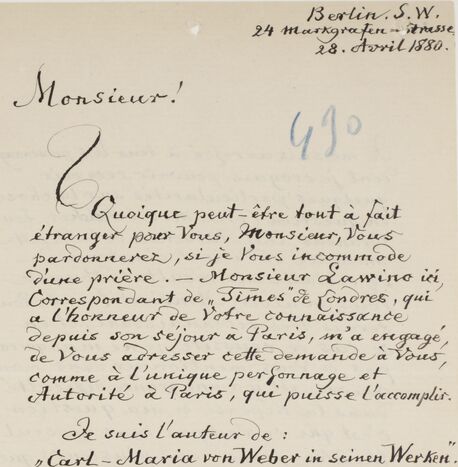 Berlin. S.W.
24 Markgrafen-Strasse
28. Avril 1880.
Monsieur!
430
Quoique peut-être tout à fait
étranger pour Vous, Monsieur, Vous
pardonnerez, si je Vous incommode
d'une prière. — Monsieur Lawino ici,
Correspondant de „Times" de Londres, qui
a l'honneur de Votre connaissance
depuis son séjour à Paris, m'a engagé,
de Vous adresser cette demande à Vous,
comme à l'unique personnage et
Autorité à Paris, qui puisse l'accomplir.
Je suis l'auteur de:
„Carl-Maria von Weber in seinen Werken".